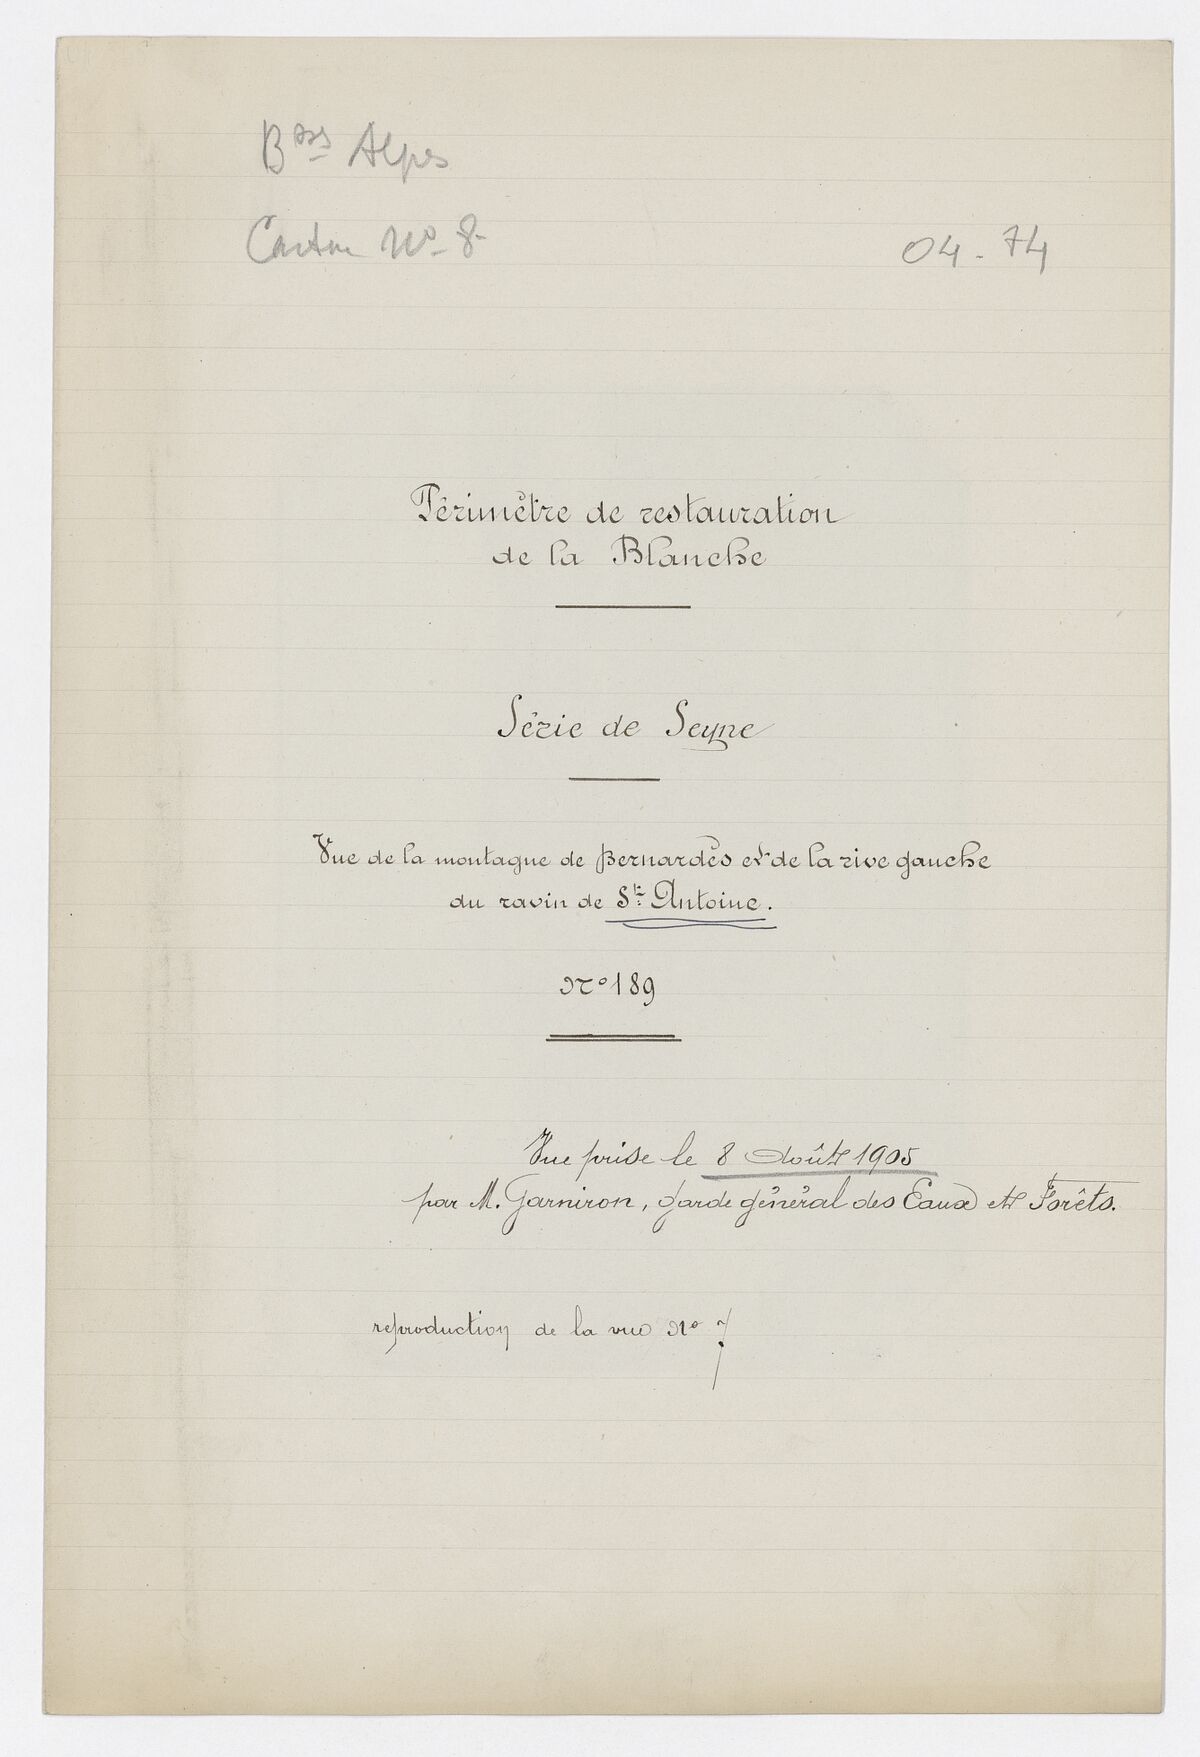 Bses Alpes
Carton No 8.
04-74
Périmètre de restauration
de la Blanche
Série de Seyne
Vue de la montagne de Bernardès et de la rive gauche
du ravin de St Antoine.
No 189
Vue prise le 8 Août 1905
par M. Garniron, garde général des Eaux et Forêts.
reproduction de la vue No 7